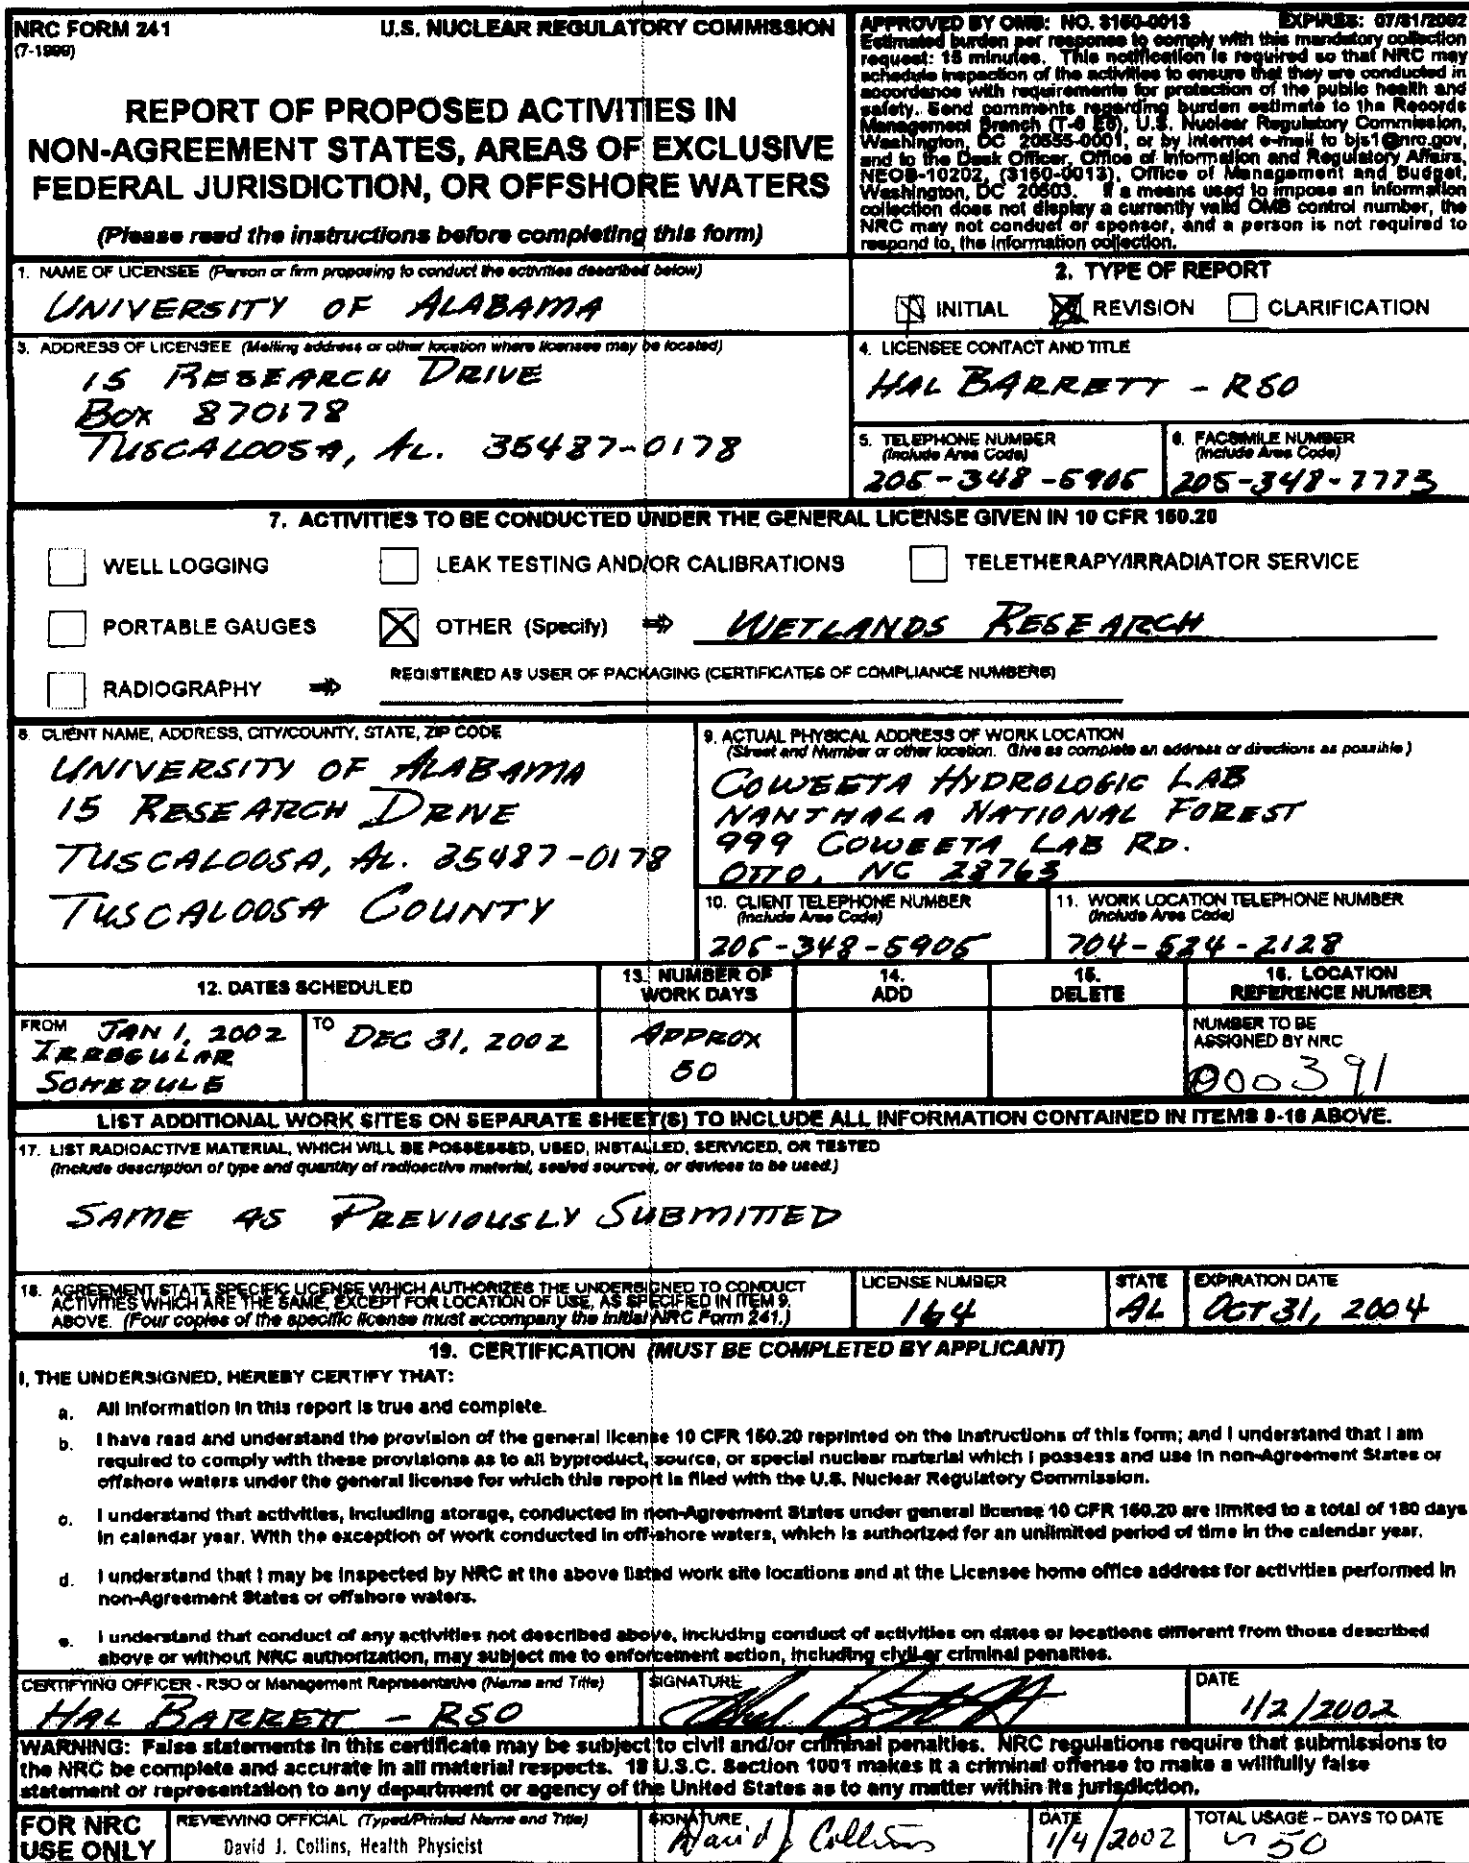 NRC FORM 241
(7-1999)
U.S. NUCLEAR REGULATORY COMMISSION
REPORT OF PROPOSED ACTIVITIES IN
NON-AGREEMENT STATES, AREAS OF EXCLUSIVE
FEDERAL JURISDICTION, OR OFFSHORE WATERS
(Please read the instructions before completing this form)
APPROVED BY OMB: NO. 3150-0013 EXPIRES: 07/31/2002
Estimated burden per response to comply with this mandatory collection
request: 15 minutes. This notification is required so that NRC may
schedule inspection of the activities to ensure that they are conducted in
accordance with requirements for protection of the public health and
safety. Send comments regarding burden estimate to the Records
Management Branch (T-6 E6), U.S. Nuclear Regulatory Commission,
Washington, DC 20555-0001, or by internet e-mail to bjs1@nrc.gov,
and to the Desk Officer, Office of Information and Regulatory Affairs,
NEOB-10202, (3150-0013), Office of Management and Budget,
Washington, DC 20503. If a means used to impose an information
collection does not display a currently valid OMB control number, the
NRC may not conduct or sponsor, and a person is not required to
respond to, the information collection.
1. NAME OF LICENSEE (Person or firm proposing to conduct the activities described below)
UNIVERSITY OF ALABAMA
2. TYPE OF REPORT
INITIAL REVISION CLARIFICATION
3. ADDRESS OF LICENSEE (Mailing address or other location where licensee may be located)
15 RESEARCH DRIVE
BOX 870178
TUSCALOOSA, AL. 35487-0178
4. LICENSEE CONTACT AND TITLE
HAL BARRETT - RSO
5. TELEPHONE NUMBER
(Include Area Code)
205-348-5905
6. FACSIMILE NUMBER
(Include Area Code)
205-348-7773
7. ACTIVITIES TO BE CONDUCTED UNDER THE GENERAL LICENSE GIVEN IN 10 CFR 150.20
WELL LOGGING LEAK TESTING AND/OR CALIBRATIONS TELETHERAPY/IRRADIATOR SERVICE
PORTABLE GAUGES OTHER (Specify) WETLANDS RESEARCH
RADIOGRAPHY REGISTERED AS USER OF PACKAGING (CERTIFICATES OF COMPLIANCE NUMBERS)
8. CLIENT NAME, ADDRESS, CITY/COUNTY, STATE, ZIP CODE
UNIVERSITY OF ALABAMA
15 RESEARCH DRIVE
TUSCALOOSA, AL. 35487-0178
TUSCALOOSA COUNTY
9. ACTUAL PHYSICAL ADDRESS OF WORK LOCATION
(Street and Number or other location. Give as complete an address or directions as possible)
COWEETA HYDROLOGIC LAB
NANTHALA NATIONAL FOREST
999 COWEETA LAB RD.
OTTO, NC 28763
10. CLIENT TELEPHONE NUMBER
(Include Area Code)
205-348-5905
11. WORK LOCATION TELEPHONE NUMBER
(Include Area Code)
704-524-2128
12. DATES SCHEDULED
13. NUMBER OF
WORK DAYS
14.
ADD
15.
DELETE
16. LOCATION
REFERENCE NUMBER
FROM JAN 1, 2002
IRREGULAR
SCHEDULE
TO DEC 31, 2002
APPROX
50
NUMBER TO BE
ASSIGNED BY NRC
000391
LIST ADDITIONAL WORK SITES ON SEPARATE SHEET(S) TO INCLUDE ALL INFORMATION CONTAINED IN ITEMS 8-16 ABOVE.
17. LIST RADIOACTIVE MATERIAL, WHICH WILL BE POSSESSED, USED, INSTALLED, SERVICED, OR TESTED
(Include description of type and quantity of radioactive material, sealed sources, or devices to be used.)
SAME AS PREVIOUSLY SUBMITTED
18. AGREEMENT STATE SPECIFIC LICENSE WHICH AUTHORIZES THE UNDERSIGNED TO CONDUCT
ACTIVITIES WHICH ARE THE SAME, EXCEPT FOR LOCATION OF USE, AS SPECIFIED IN ITEM 9.
ABOVE. (Four copies of the specific license must accompany the initial NRC Form 241.)
LICENSE NUMBER
164
STATE
AL
EXPIRATION DATE
OCT 31, 2004
19. CERTIFICATION (MUST BE COMPLETED BY APPLICANT)
I, THE UNDERSIGNED, HEREBY CERTIFY THAT:
a. All information in this report is true and complete.
b. I have read and understand the provision of the general license 10 CFR 150.20 reprinted on the instructions of this form; and I understand that I am
required to comply with these provisions as to all byproduct, source, or special nuclear material which I possess and use in non-Agreement States or
offshore waters under the general license for which this report is filed with the U.S. Nuclear Regulatory Commission.
c. I understand that activities, including storage, conducted in non-Agreement States under general license 10 CFR 150.20 are limited to a total of 180 days
in calendar year. With the exception of work conducted in off-shore waters, which is authorized for an unlimited period of time in the calendar year.
d. I understand that I may be inspected by NRC at the above listed work site locations and at the Licensee home office address for activities performed in
non-Agreement States or offshore waters.
e. I understand that conduct of any activities not described above, including conduct of activities on dates or locations different from those described
above or without NRC authorization, may subject me to enforcement action, including civil or criminal penalties.
CERTIFYING OFFICER - RSO or Management Representative (Name and Title)
HAL BARRETT - RSO
SIGNATURE
Hal Barrett
DATE
1/2/2002
WARNING: False statements in this certificate may be subject to civil and/or criminal penalties. NRC regulations require that submissions to
the NRC be complete and accurate in all material respects. 18 U.S.C. Section 1001 makes it a criminal offense to make a willfully false
statement or representation to any department or agency of the United States as to any matter within its jurisdiction.
FOR NRC
USE ONLY
REVIEWING OFFICIAL (Typed/Printed Name and Title)
David J. Collins, Health Physicist
SIGNATURE
David J Collins
DATE
1/4/2002
TOTAL USAGE - DAYS TO DATE
~ 50